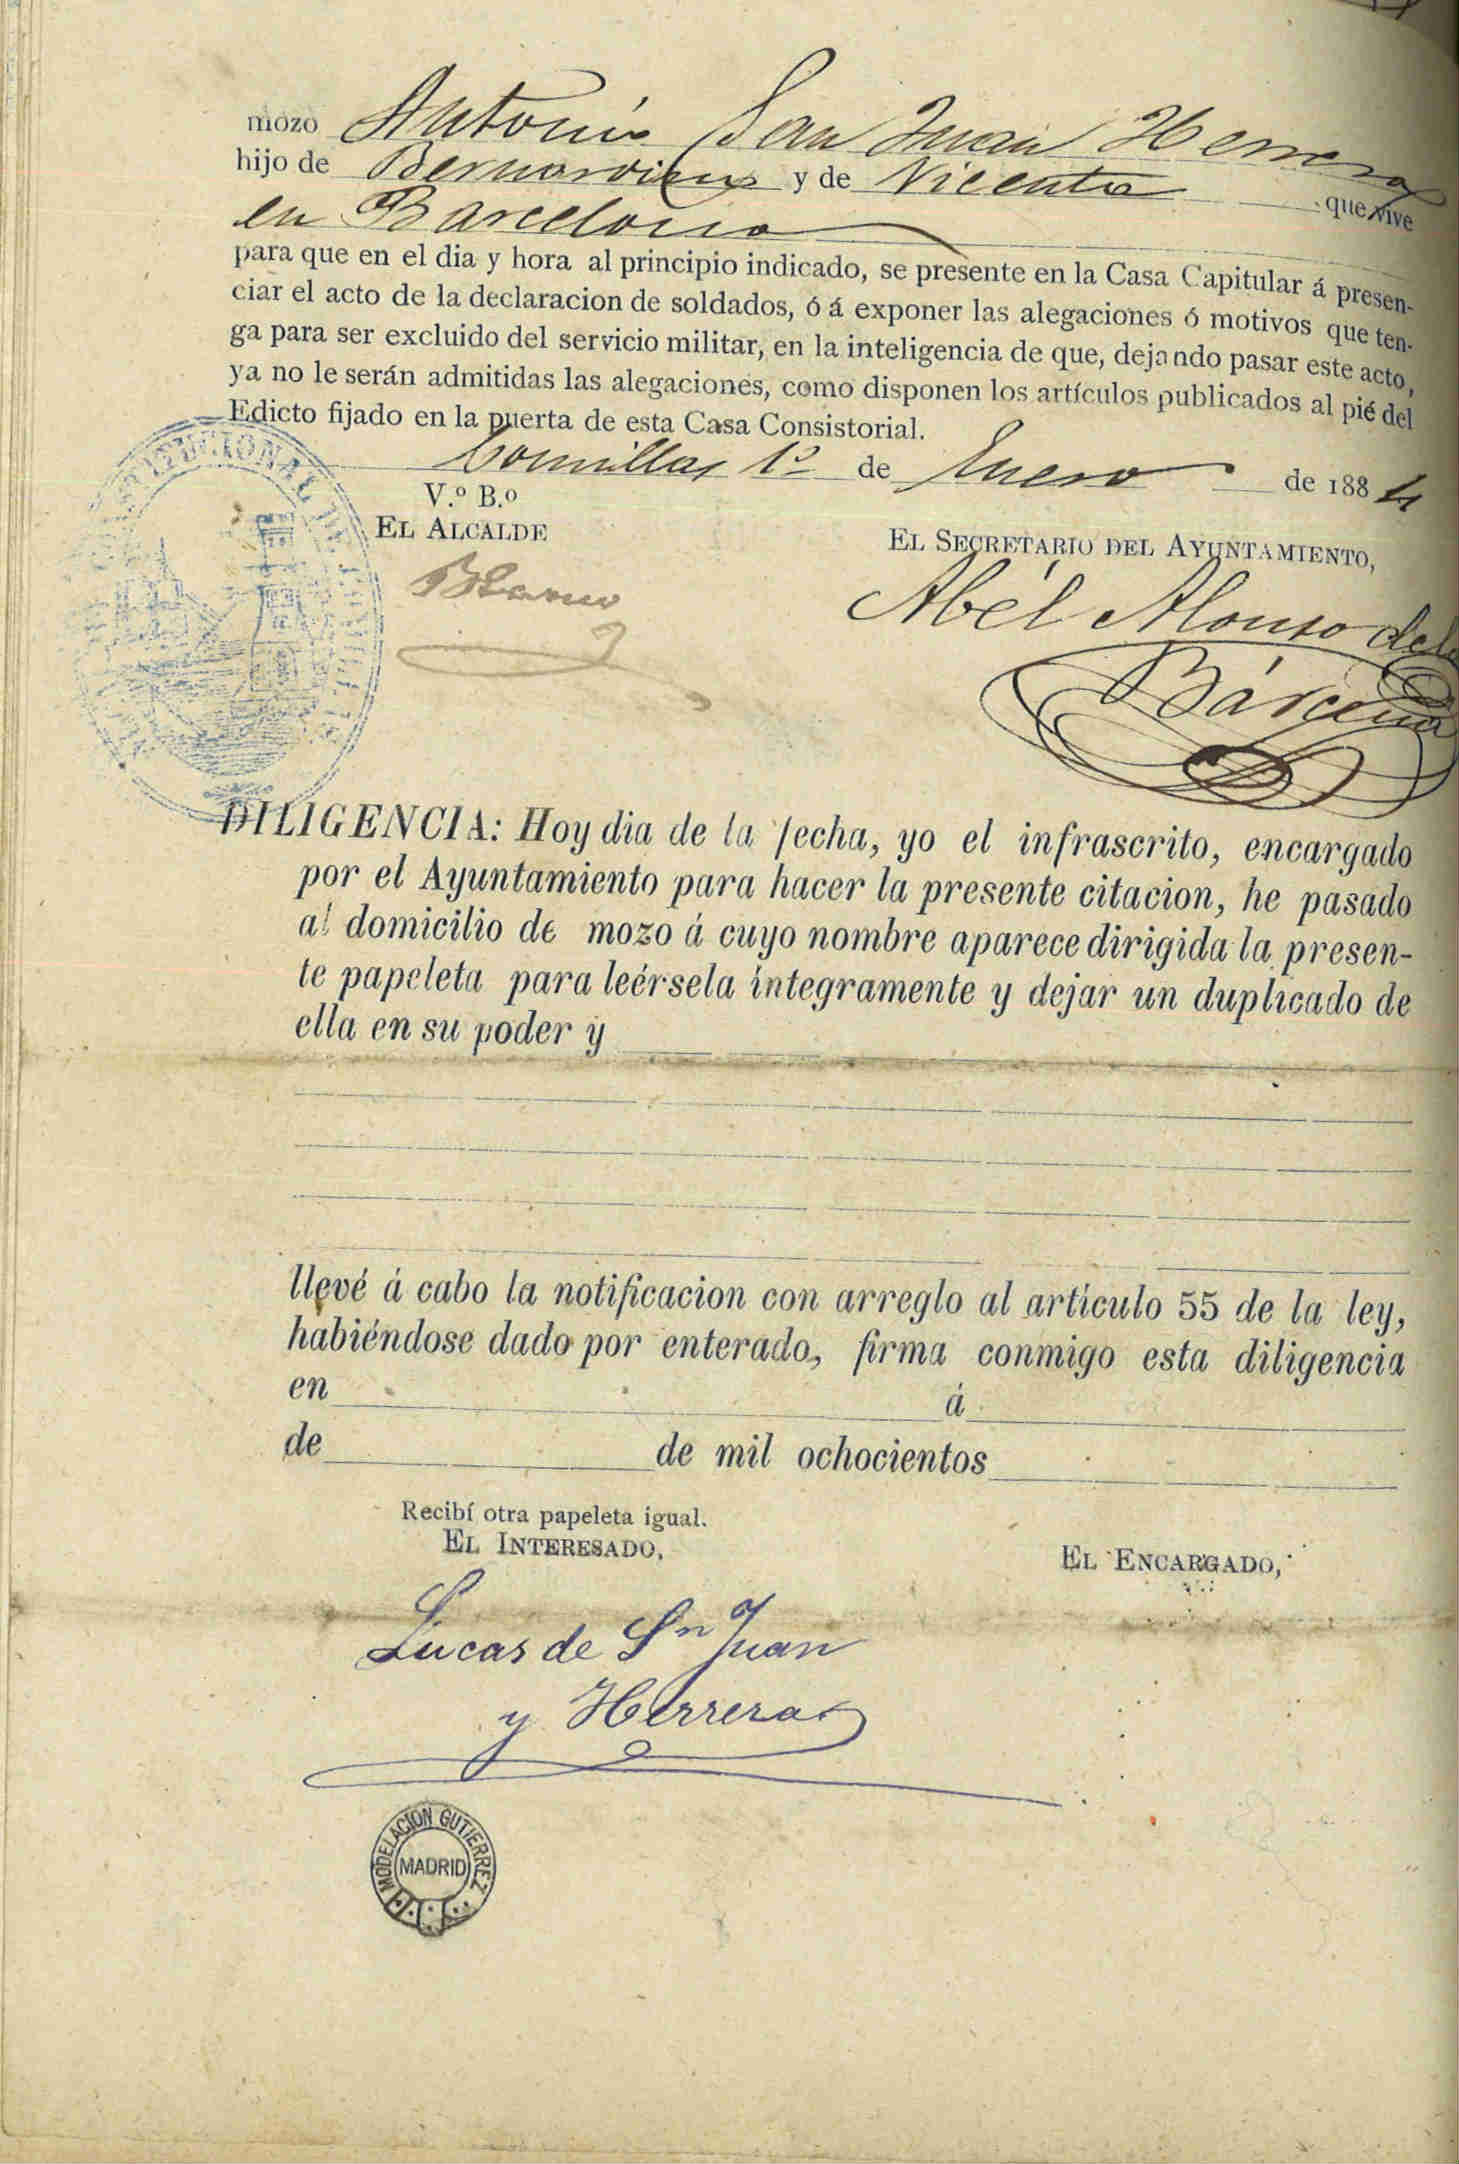 mozo Antonio San Juan Herrera
hijo de Bernardino y de Vicenta que vive
en Barcelona
para que en el dia y hora al principio indicado, se presente en la Casa Capitular á presen-
ciar el acto de la declaracion de soldados, ó á exponer las alegaciones ó motivos que ten-
ga para ser excluido del servicio militar, en la inteligencia de que, dejando pasar este acto,
ya no le serán admitidas las alegaciones, como disponen los artículos publicados al pié del
Edicto fijado en la puerta de esta Casa Consistorial.
Comillas 1º de Enero de 1884
V.º B.º
EL ALCALDE
EL SECRETARIO DEL AYUNTAMIENTO,
Abél Alonso de la
Bárcena
DILIGENCIA: Hoy dia de la fecha, yo el infrascrito, encargado
por el Ayuntamiento para hacer la presente citacion, he pasado
al domicilio de mozo á cuyo nombre aparece dirigida la presen-
te papeleta para leérsela íntegramente y dejar un duplicado de
ella en su poder y
llevé á cabo la notificacion con arreglo al artículo 55 de la ley,
habiéndose dado por enterado, firma conmigo esta diligencia
en á
de de mil ochocientos
Recibí otra papeleta igual.
EL INTERESADO,
EL ENCARGADO,
Lucas de Sn Juan
y Herrera
MODELACION GUTIERREZ
MADRID